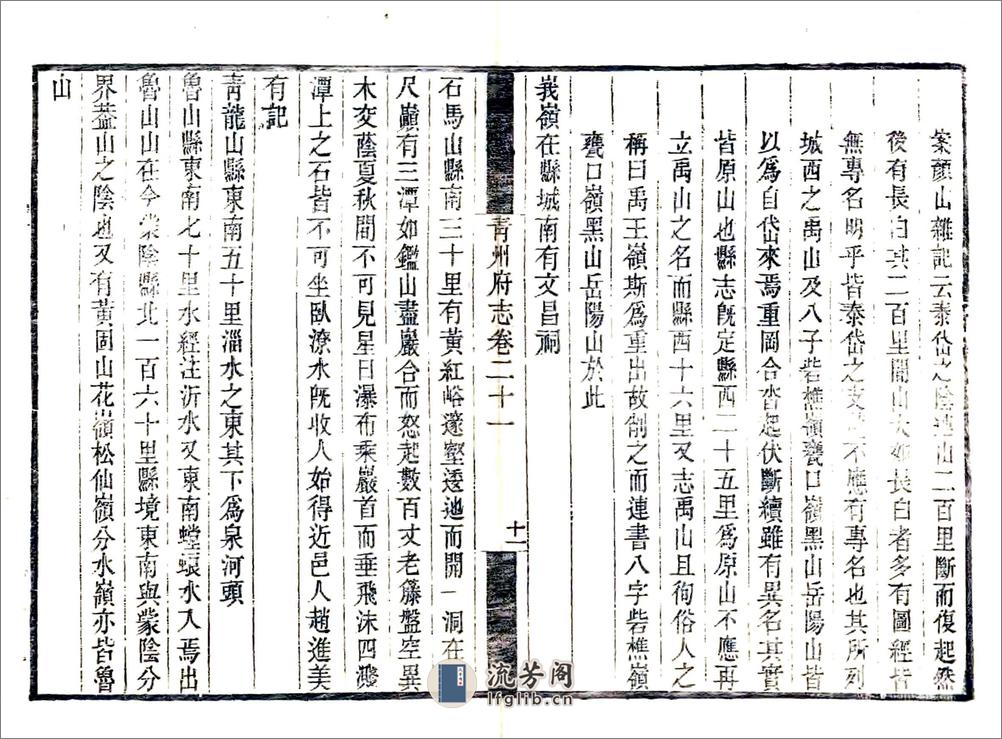 案顏山雜記云泰岱之陰連山二百里斷而復起然
後有長白其二百里間山大如長白者多有圖經皆
無專名明乎皆泰岱之支不應有專名也其所列
城西之禹山及八子砦樵嶺甕口嶺黑山岳陽山皆
以爲自岱來焉重岡合沓起伏斷續雖有異名其實
皆原山也縣志旣定縣西二十五里爲原山不應再
立禹山之名而縣西十六里又志禹山且徇俗人之
稱曰禹王嶺斯爲重出故削之而連書八字砦樵嶺
甕口嶺黑山岳陽山於此
峩嶺在縣城南有文昌祠
青州府志卷二十一
十一
石馬山縣南三十里有黃紅峪邃壑逶迆而開一洞在
尺巔有三潭如鑑山盡巖合而怒起數百丈老籐盤空異
木交蔭夏秋間不可見星日瀑布乘巖首而垂飛沫四濺
潭上之石皆不可坐臥潦水旣收人始得近邑人趙進美
有記
青龍山縣東南五十里淄水之東其下爲泉河頭
魯山縣東南七十里水經注沂水又東南螳螂水入焉出
魯山山在今蒙陰縣北一百六十里縣境東南與蒙陰分
界葢山之陰也又有黃固山花嶺松仙嶺分水嶺亦皆魯
山
流芳阁
lfglib.cn